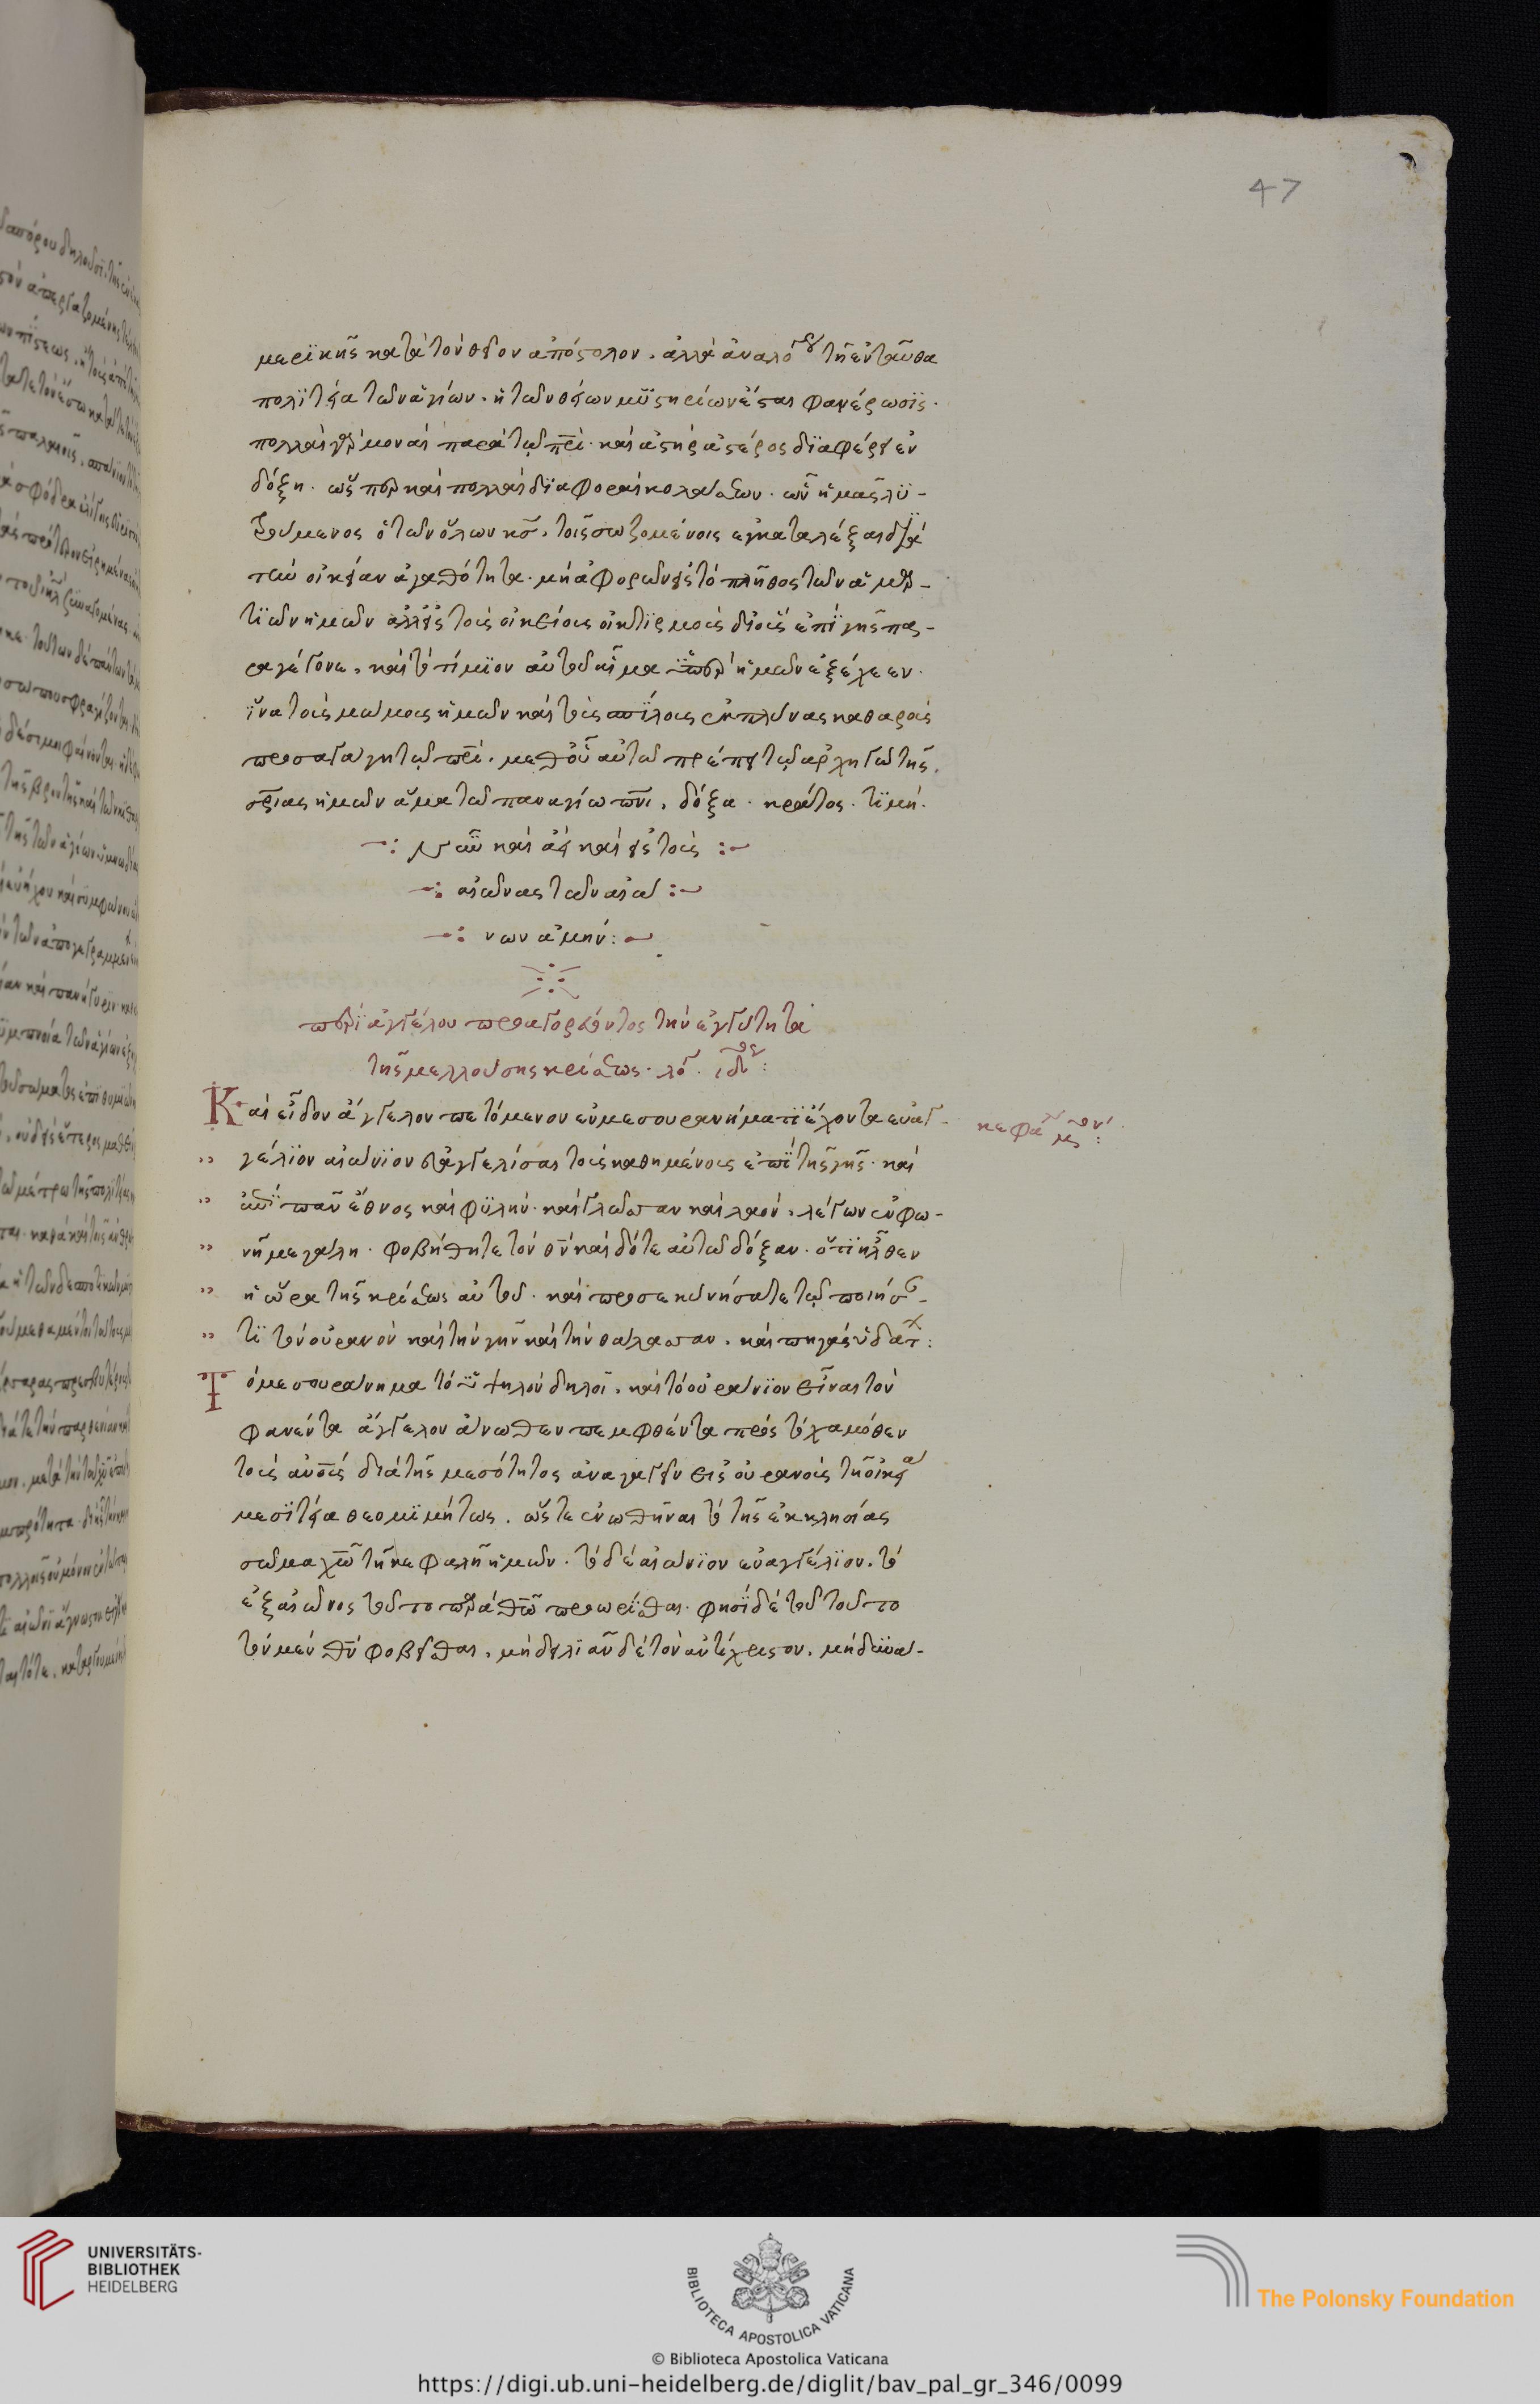 47
μερικῆς κατὰ τὸν θεῖον ἀπόστολον. ἀλλὰ ἀναλόγου τῆ ἐνταῦθα
πολιτεία τῶν ἁγίων. ἡ τῶν θείων μυστηρίων ἔσται φανέρωσις.
πολλαὶ γὰρ μοναὶ παρὰ τῷ πρι. καὶ ἀστὴρ ἀστέρος διαφέρει ἐν
δόξη. ὥσπερ καὶ πολλαὶ διαφοραὶ κολάσεων. ὧν ἡμᾶς λυ-
τρούμενος ὁ τῶν ὅλων κς. τοῖς σωζομένοις ἐγκαταλέξαι διὰ
τὴν οἰκείαν ἀγαθότητα. μὴ ἀφορῶν εἰς τὸ πλῆθος τῶν ἁμαρ-
τιῶν ἡμῶν ἀλλ' εἰς τοὺς οἰκείους οἰκτιρμοὺς δι' οὓς ἐπὶ γῆς πα-
ραγέγονε. καὶ τὸ τίμιον αὐτοῦ αἷμα ὑπὲρ ἡμῶν ἐξέχεεν.
ἵνα τοὺς μώμους ἡμῶν καὶ τοὺς σπίλους ἐκπλύνας καθαροὺς
προσαγάγη τῷ πρι. μεθ' οὗ αὐτῷ πρέπει τῷ ἀρχηγῷ τῆς
σριας ἡμῶν ἅμα τῷ παναγίω πνι. δόξα. κράτος. τιμή.
νῦν καὶ ἀεὶ καὶ εἰς τοὺς
αἰῶνας τῶν αἰώ
νων ἀμήν:
περὶ ἀγγέλου προαγορεύοντος τὴν ἐγγύτητα
τῆς μελλούσης κρίσεως. λόγ. ιδ:
Καὶ εἶδον ἄγγελον πετόμενον ἐν μεσουρανήματι ἔχοντα εὐαγ-
κεφάλ. μ:
γέλιον αἰώνιον εὐαγγελίσαι τοὺς καθημένους ἐπὶ τῆς γῆς. καὶ
ἐπὶ πᾶν ἔθνος καὶ φυλὴν. καὶ γλῶσσαν καὶ λαόν. λέγων ἐν φω-
νῆ μεγάλη. φοβήθητε τὸν θν καὶ δότε αὐτῷ δόξαν. ὅτι ἦλθεν
ἡ ὥρα τῆς κρίσεως αὐτοῦ. καὶ προσκυνήσατε τῷ ποιήσαν-
τι τὸν οὐρανὸν καὶ τὴν γῆν καὶ τὴν θάλασσαν. καὶ πηγὰς ὑδάτων:
Τὸ μεσουράνημα τὸ ὑψηλὸν δηλοῖ. καὶ τὸ οὐράνιον εἶναι τὸν
φανέντα ἄγγελον ἄνωθεν πεμφθέντα πρὸς τὸ χαμόθεν
τοὺς ανους διὰ τῆς μεσότητος ἀναγαγεῖν εἰς οὐρανοὺς τῆ οἰκεία
μεσιτεία θεομιμήτως. ὥστε ἑνωθῆναι τὸ τῆς ἐκκλησίας
σῶμα χω τῆ κεφαλῆ ἡμῶν. τὸ δὲ αἰώνιον εὐαγγέλιον. τὸ
ἐξ αἰῶνος τοῦτο παρὰ θω προωρίσθαι. φησὶ δὲ τοῦ τοῦτο
τὸν μὲν θν φοβεῖσθαι. μὴ δειλιᾶν δὲ τὸν ἀντίχριστον. μὴ δυνά-
UNIVERSITÄTS-
BIBLIOTHEK
HEIDELBERG
BIBLIOTECA APOSTOLICA VATICANA
The Polonsky Foundation
© Biblioteca Apostolica Vaticana
https://digi.ub.uni-heidelberg.de/diglit/bav_pal_gr_346/0099